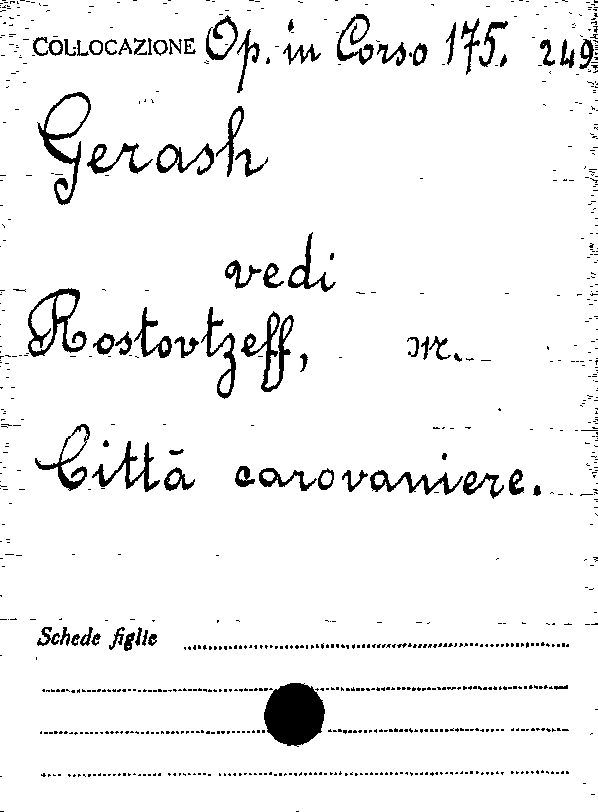 COLLOCAZIONE Op. in Corso 175. 249
Gerash
vedi
Rostovtzeff, M.
Città carovaniere.
Schede figlie